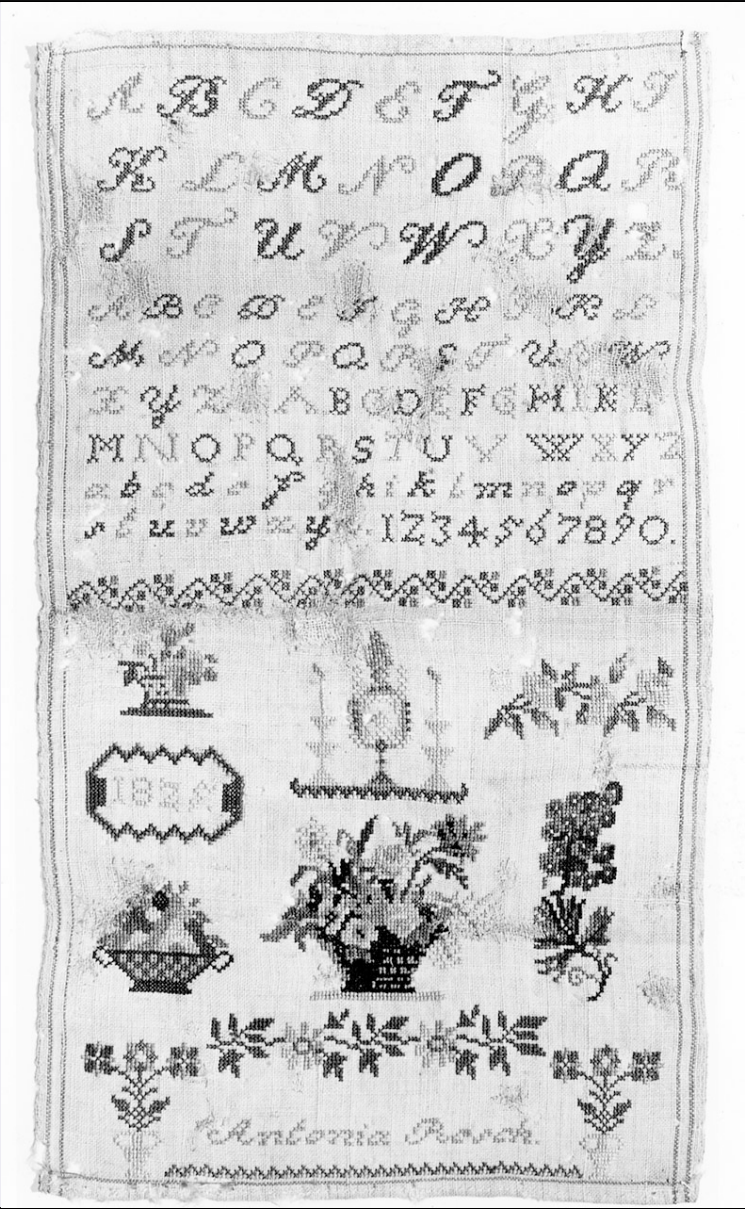 A B C D E F G H I
K L M N O P Q R
S T U V W X Y Z.
A B C D E F G H I K L
M N O P Q R S T U V W
X Y Z A B C D E F G H I K L
M N O P Q R S T U V W X Y Z
a b c d e f g h i k l m n o p q r
s t u v w x y z. 1234567890.
Antonia Resch.